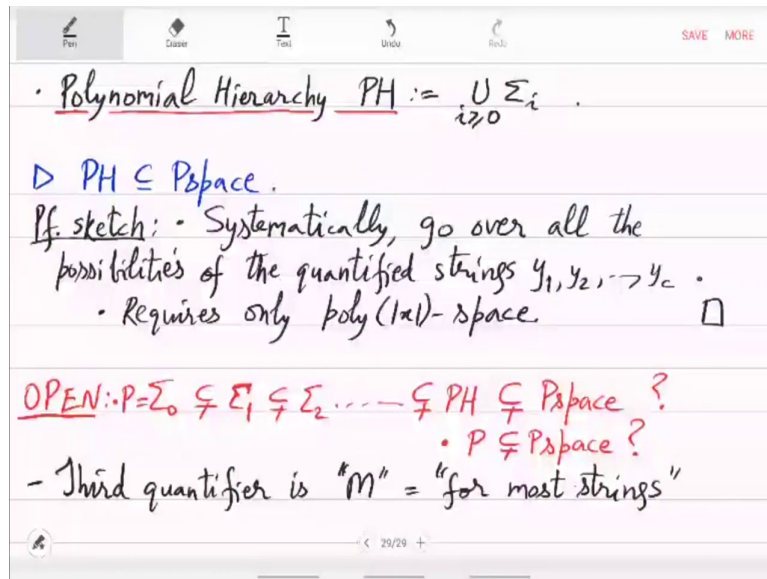 Pen Eraser Text Undo Redo SAVE MORE
· Polynomial Hierarchy PH := ∪ Σᵢ .
i≥0
▷ PH ⊆ Pspace.
Pf. sketch: · Systematically, go over all the
possibilities of the quantified strings y₁, y₂, ..., y_c .
· Requires only poly(|x|)-space. □
OPEN: · P=Σ₀ ⊊ Σ₁ ⊊ Σ₂ ..... ⊊ PH ⊊ Pspace ?
· P ⊊ Pspace ?
- Third quantifier is "M" = "for most strings"
< 29/29 +